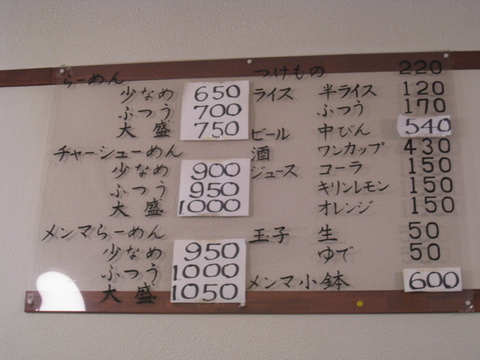 らーめん
少なめ 650
ふつう 700
大盛 750
チャーシューめん
少なめ 900
ふつう 950
大盛 1000
メンマらーめん
少なめ 950
ふつう 1000
大盛 1050
つけもの 220
ライス 半ライス 120
ふつう 170
ビール 中びん 540
酒 ワンカップ 430
ジュース コーラ 150
キリンレモン 150
オレンジ 150
玉子 生 50
ゆで 50
メンマ小鉢 600